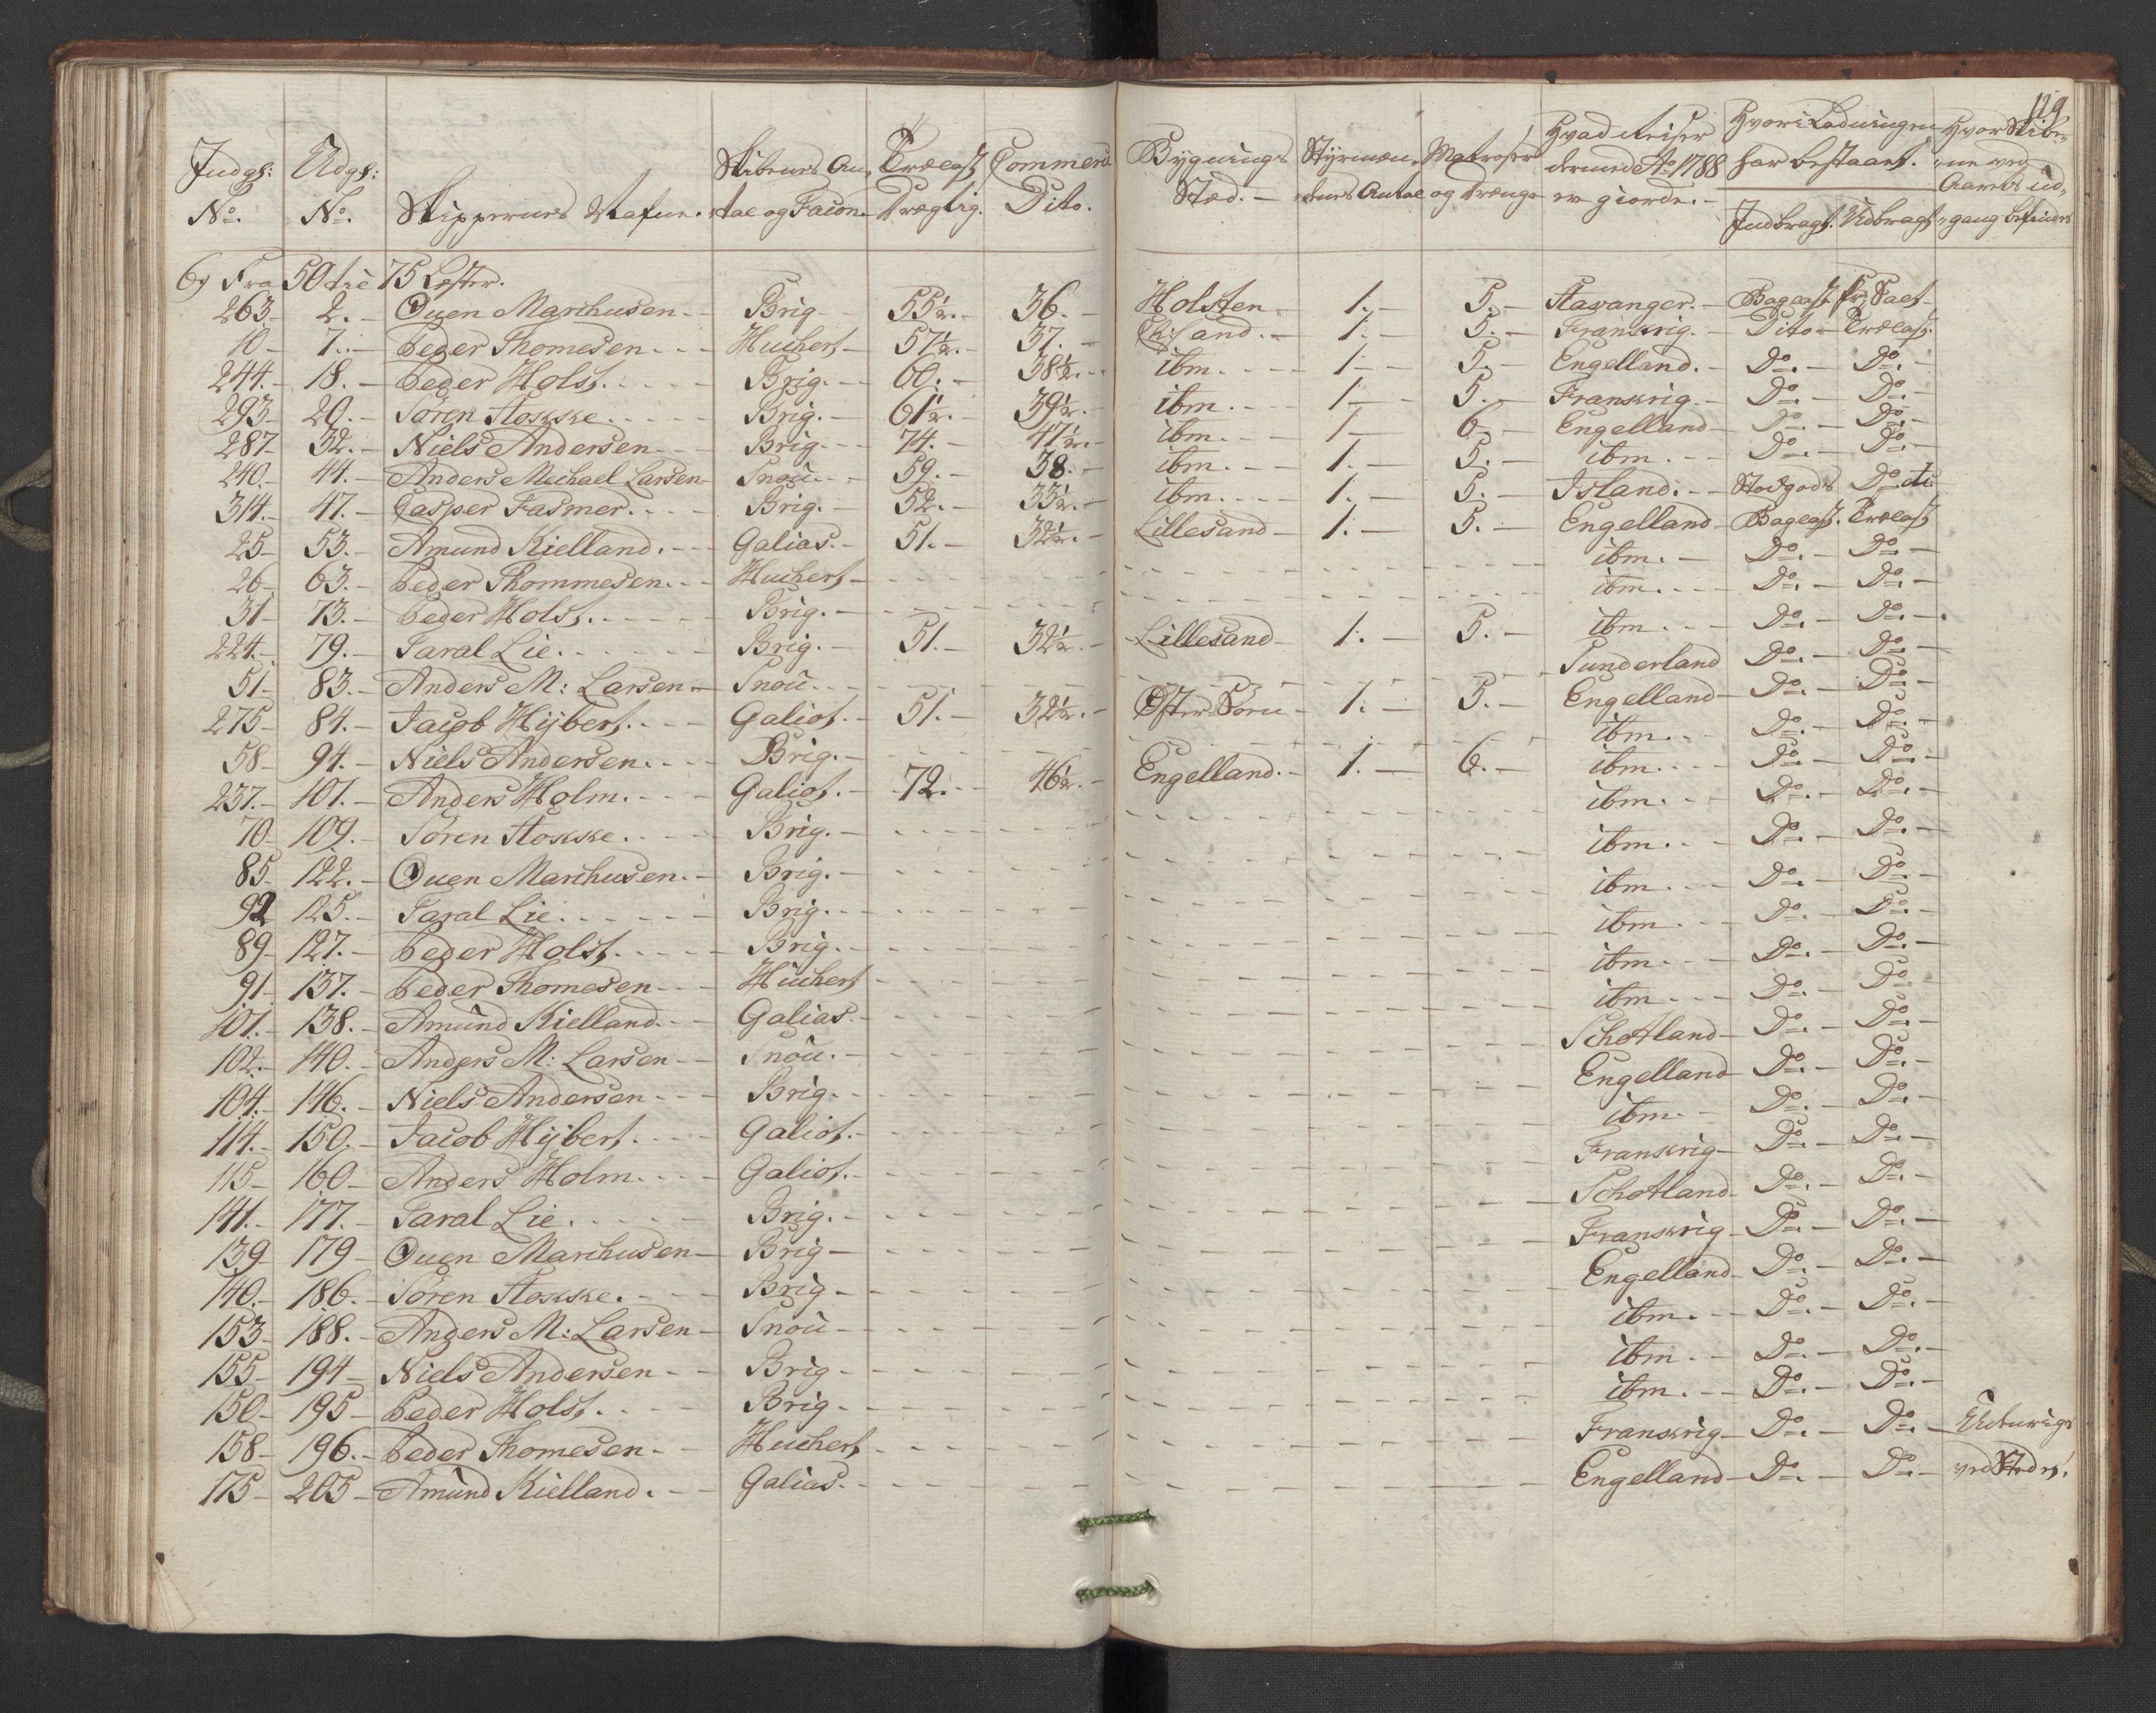 129
Indgl: Udgl: Skibenes An, Trælast Commerce Bygnings Styrmæn, Matroser Hvad Reiser Hvori Ladningen Hvor Skibe,
No. No. Skippernes Nafne. tal og Facon. Drægtig. Dito. Stæd. denes Antal og Drænge dermed Ao 1788 er giorde. har bestaaet. Indbragt. Udbragt ne ved Aarets Ud, gang befindes
b) Fra 50 til 75 Læster.
263 2. Ouen Marchusen Brig 55½. 36. Holsten 1. 5. Stavanger. Baglast
10 7. Peder Thomesen Huchert 57½. 37. Chrsand. 1. 5. Franskrig. Dito Trælast.
244. 18. Peder Holst. Brig. 60. 38½. ibm. 1 5. Engelland. Do. Do.
293 20. Sören Stokske Brig. 61½. 39½. ibm. 1 5. Franskrig. Do. Do.
287 32. Niels Andersen Brig 74. 47½. ibm. 1 6 Engelland Do. Do.
240. 44. Anders Michael Larsen Snou 59. 38. ibm. 1. 5. ibm. Do. Do.
314. 47. Casper Fasmer. Brig. 52. 33½. ibm. 1. 5. Island. Stodgods Do.
25 53. Amund Kielland. Galias. 51. 32½. Lillesand 1. 5. Engelland Baglast. Trælast
26 63. Peder Thommesen. Huchert ibm. Do. Do.
31 73. Peder Holst. Brig. ibm. Do. Do.
224. 79. Taral Lie. Brig. 51. 32½. Lillesand 1. 5. ibm Do. Do.
51 83. Anders M: Larsen Snou. Sunderland Do. Do.
275 84. Jacob Hijbert. Galiot. 51. 32½. Öster Söru 1. 5. Engelland Do. Do.
58 94. Niels Andersen. Brig. ibm. Do. Do.
237. 101. Anders Holm. Galiot. 72. 46½. Engelland. 1. 6. ibm. Do. Do.
70 109. Sören Stokske. Brig. ibm. Do. Do.
85 122. Ouen Marchusen. Brig. ibm. Do. Do.
92 125. Taral Lie. Brig. ibm. Do. Do.
89 127. Peder Holst. Brig. ibm. Do. Do.
91 137. Peder Thomesen Huchert ibm. Do. Do.
101. 138. Amund Kielland. Galias. ibm Do. Do.
102. 140. Anders M: Larsen Snou. Schotland Do. Do.
104. 146. Niels Andersen Brig. Engelland Do. Do.
114. 150. Jacob Hijbert. Galiot. ibm. Do. Do.
115 160 Anders Holm. Galiot. Franskrig Do. Do.
141. 177. Taral Lie. Brig. Schotland Do. Do.
139 179 Ouen Marchusen Brig Franskrig Do. Do.
140. 186. Sören Stokske. Brig Engelland Do. Do.
153 188. Anders M: Larsen Snou ibm. Do. Do.
155 194 Niels Andersen Brig ibm. Do. Do.
150 195 Peder Holst. Brig ibm. Do. Do.
158 196. Peder Thomesen Huchert Franskrig Do. Do. Udenrigs
175 205 Amund Kielland. Galias. Engelland Do. Do. ved Stedet.